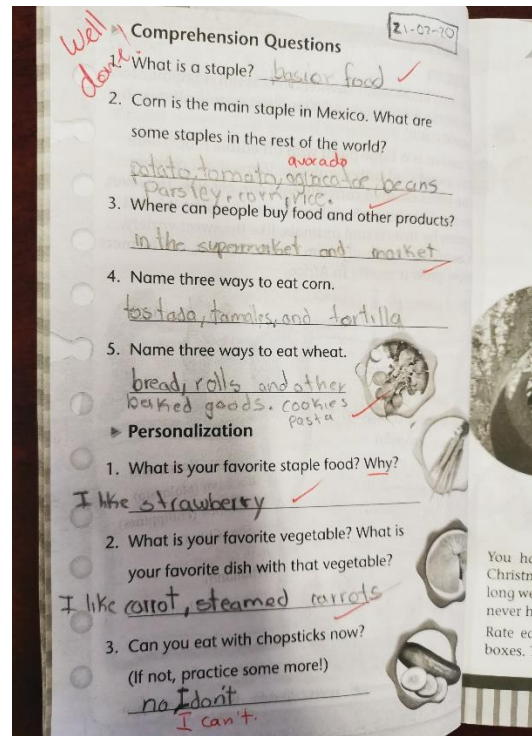 Well done.
21-02-20
Comprehension Questions
1. What is a staple? basior food
2. Corn is the main staple in Mexico. What are
some staples in the rest of the world?
avocado
potato, tomato, beans
parsley, corn, rice.
3. Where can people buy food and other products?
in the supermarket and market
4. Name three ways to eat corn.
tostada, tamales, and tortilla
5. Name three ways to eat wheat.
bread, rolls and other
baked goods. cookies
pasta
Personalization
1. What is your favorite staple food? Why?
I like strawberry
2. What is your favorite vegetable? What is
your favorite dish with that vegetable?
I like carrot, steamed carrots
3. Can you eat with chopsticks now?
(If not, practice some more!)
no I don't
I can't.
You
Christm
long we
never h
Rate
boxes.